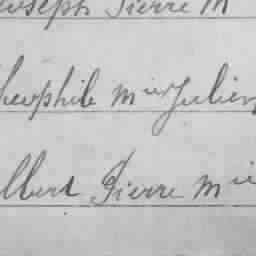 Joseph Pierre M
Théophile Mie Julien
Albert Pierre Mie